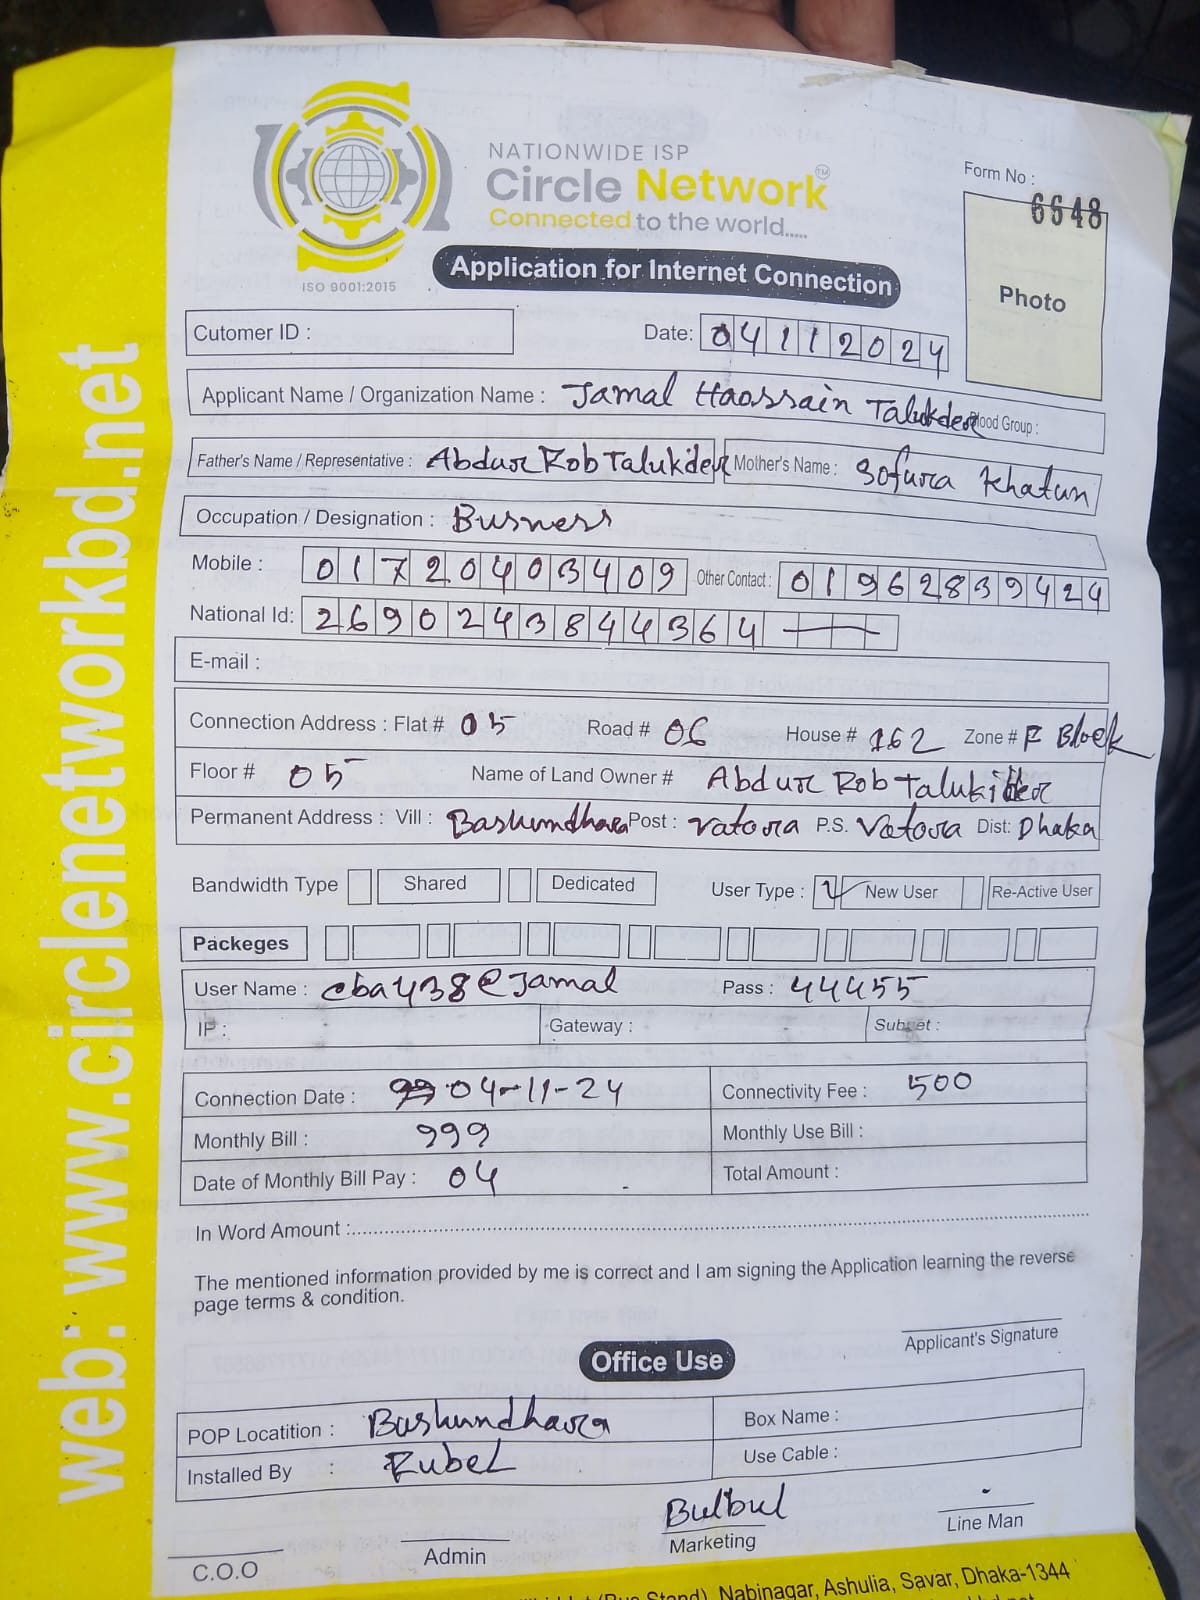 NATIONWIDE ISP
Circle Network™
Connected to the world.....
ISO 9001:2015
Form No :
6648
Photo
Application for Internet Connection
Cutomer ID :
Date: 04112024
Applicant Name / Organization Name : Jamal Haossain Talukder Blood Group :
Father's Name / Representative : Abdur Rob Talukder Mother's Name : Sofura Khatun
Occupation / Designation : Busness
Mobile : 01720403409 Other Contact : 01962839424
National Id: 2690243844364
E-mail :
Connection Address : Flat # 05 Road # 06 House # 162 Zone # F Block
Floor # 05 Name of Land Owner # Abdur Rob Talukder
Permanent Address : Vill : Bashundhara Post : Vatara P.S. Vatara Dist: Dhaka
Bandwidth Type Shared Dedicated User Type : New User Re-Active User
Packeges
User Name : cba438@Jamal Pass : 44455
IP : Gateway : Subnet :
Connection Date : 04-11-24 Connectivity Fee : 500
Monthly Bill : 999 Monthly Use Bill :
Date of Monthly Bill Pay : 04 Total Amount :
In Word Amount :
The mentioned information provided by me is correct and I am signing the Application learning the reverse
page terms & condition.
Applicant's Signature
Office Use
POP Locatition : Bashundhara Box Name :
Installed By : Rubel Use Cable :
Bulbul
C.O.O Admin Marketing Line Man
(Bus Stand), Nabinagar, Ashulia, Savar, Dhaka-1344
web: www.circlenetworkbd.net